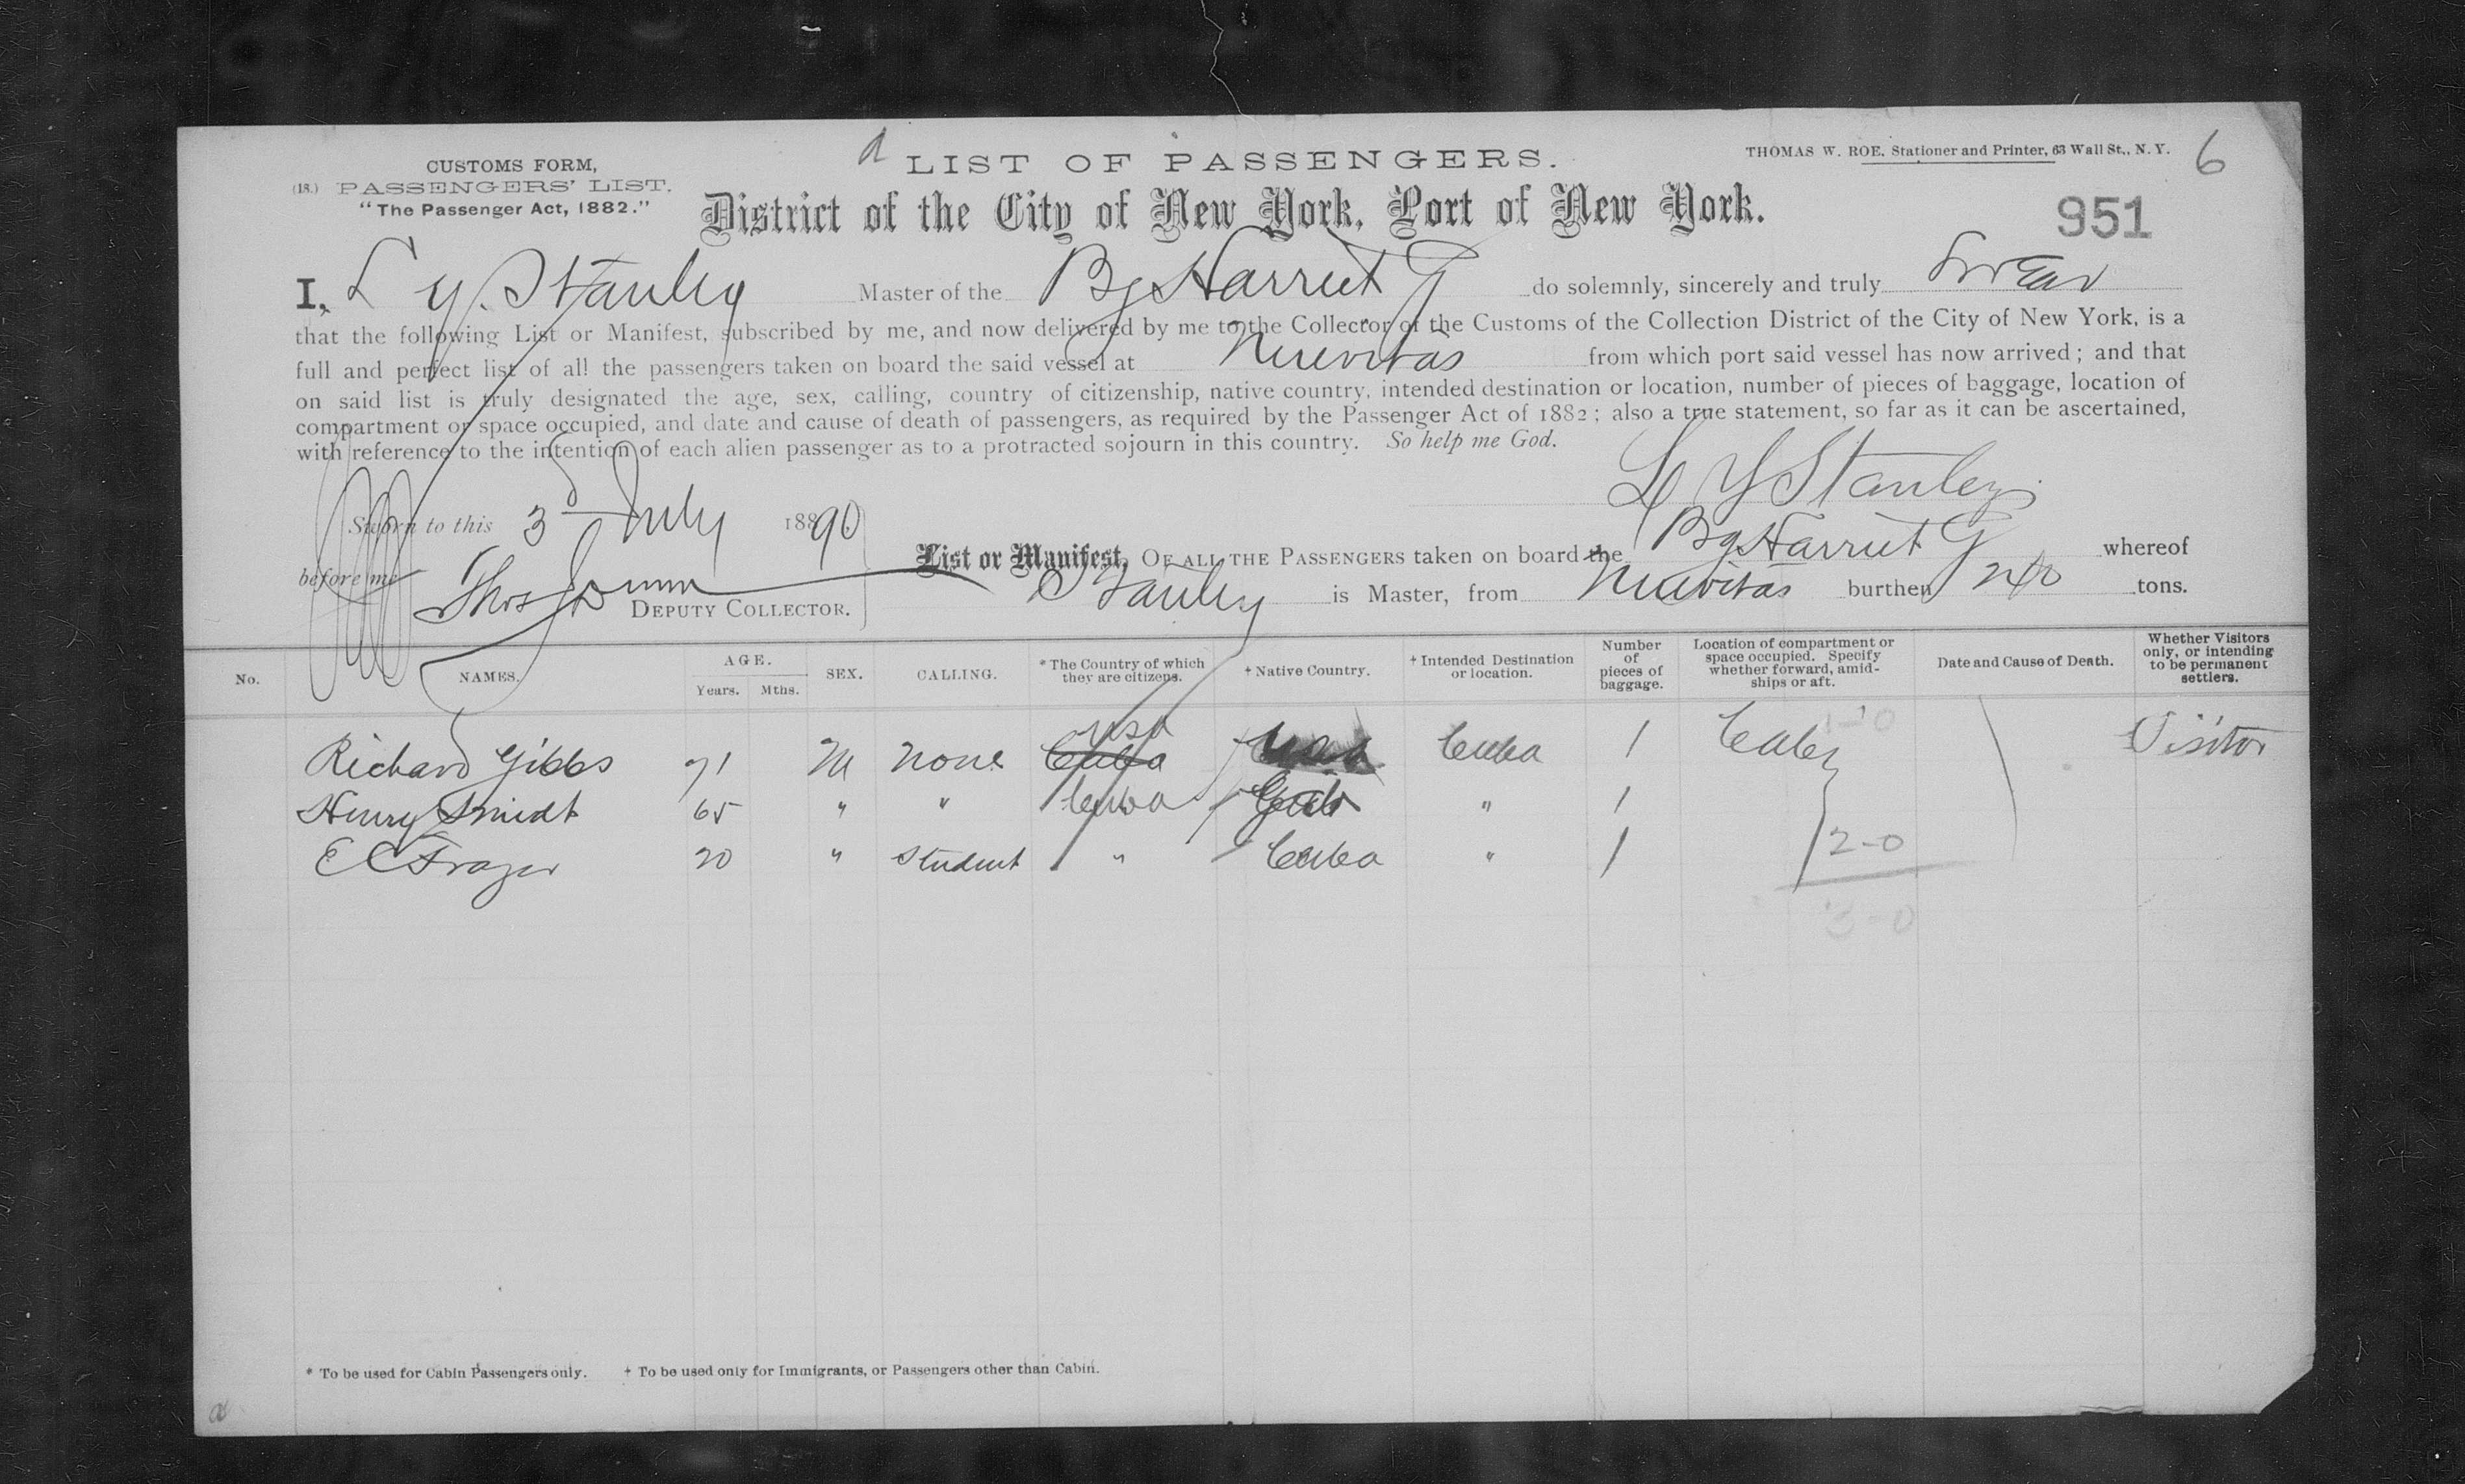 CUSTOMS FORM,
(18.) PASSENGERS' LIST.
"The Passenger Act, 1882."
a LIST OF PASSENGERS.
THOMAS W. ROE, Stationer and Printer, 63 Wall St., N. Y.
6
District of the City of New York, Port of New York.
951
I, L Y. Stanley Master of the Bg Harriet G do solemnly, sincerely and truly swear
that the following List or Manifest, subscribed by me, and now delivered by me to the Collector of the Customs of the Collection District of the City of New York, is a
full and perfect list of all the passengers taken on board the said vessel at Nuevitas from which port said vessel has now arrived; and that
on said list is truly designated the age, sex, calling, country of citizenship, native country, intended destination or location, number of pieces of baggage, location of
compartment or space occupied, and date and cause of death of passengers, as required by the Passenger Act of 1882; also a true statement, so far as it can be ascertained,
with reference to the intention of each alien passenger as to a protracted sojourn in this country. So help me God.
L Y Stanley
Sworn to this 3d July 1890
before me Thos
DEPUTY COLLECTOR.
List or Manifest, OF ALL THE PASSENGERS taken on board the Bg Harriet G whereof
Stanley is Master, from Nuevitas burthen 240 tons.
No. NAMES. AGE. Years. Mths. SEX. CALLING. * The Country of which they are citizens. † Native Country. † Intended Destination or location. Number of pieces of baggage. Location of compartment or space occupied. Specify whether forward, amidships or aft. Date and Cause of Death. Whether Visitors only, or intending to be permanent settlers.
Richard Gibbs 71 M None Cuba usa usa Cuba 1 1-0 Visitor
Henry Smidt 65 " " Cuba " 1
E C Frazer 20 " Student " Cuba " 1 2-0
3-0
* To be used for Cabin Passengers only. † To be used only for Immigrants, or Passengers other than Cabin.
a